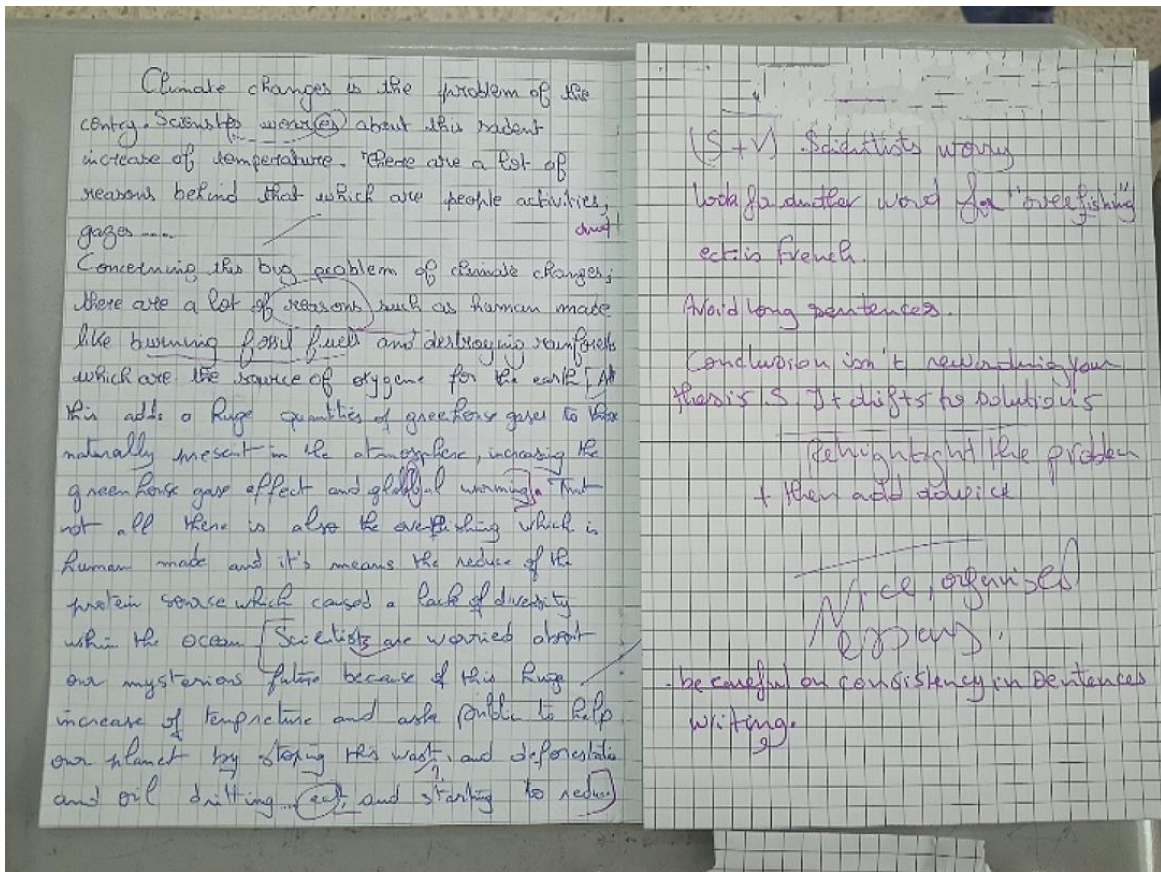 Climate changes is the problem of the
centry. Scienstps wearies about this sadent
increase of temperature. There are a lot of
reasons behind that which are people activities,
gazes ....
Concerning this big problem of climate changes,
there are a lot of reasons such as human made
like burning fossil fuels and destroying rainforests
which are the source of oxygene for the earth [All
this adds a huge quantities of greenhouse gases to those
naturally present in the atmosphere, increasing the
greenhouse gase effect and global worming. That
not all there is also the overfishing which is
human made and it's means the reduce of the
protein source which caused a lack of diversity
within the ocean [Scientists are worried about
our mysterious future because of this huge
increase of tempreture and ask public to help
our planet by stoping this wast, and deforestatio
and oil dritting ect, and starting to reduce
(S + V) Scientists worry
look for another word for "overfishing"
ect is French.
Avoid long sentences.
Conclusion isn't rewording your
thesis S It shifts to solutions
Rehightight the problem
+ then add advice
Nice, organised
essay.
- be careful on consistency in sentences
writing.